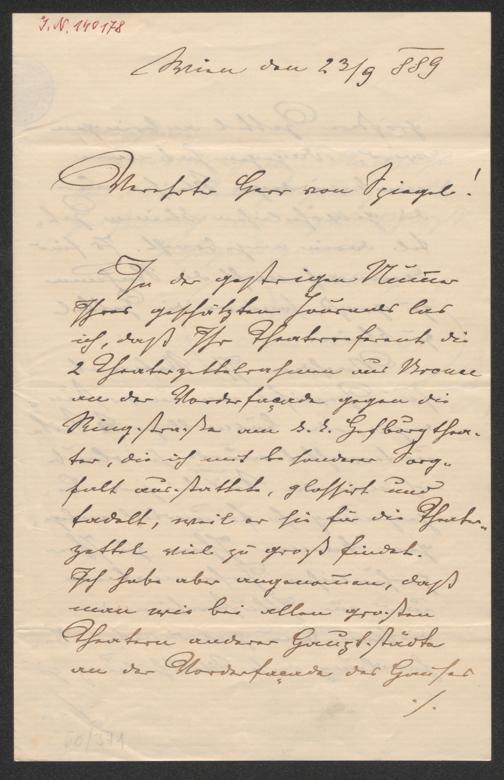 I.N. 140178
Wien den 23/9 889
Verehrter Herr von Spiegel!
In der gestrigen Nummer
Ihres geschätzten Journals las
ich, daß Ihr Theaterreferent die
2 Theaterzettelrahmen aus Bronce
an der Vorderfaçade gegen die
Ringstraße am k. k. Hofburgthea-
ter, die ich mit besonderer Sorg-
falt ausstattete, glossirt und
tadelt, weil er sie für die Theater-
zettel viel zu groß findet.
Ich habe aber angenommen, daß
man wie bei allen großen
Theatern anderer Hauptstädte
an der Vorderfaçade des Hauses
./.
60/371